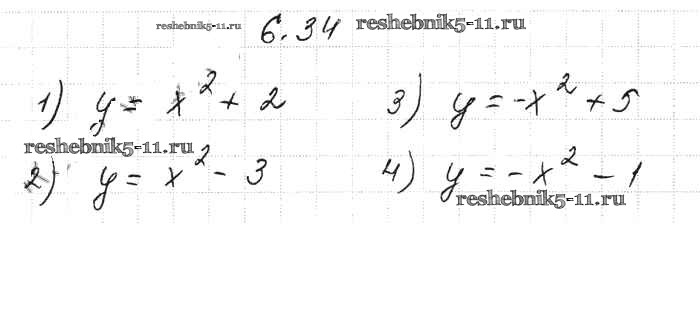 reshebnik5-11.ru 6.34 reshebnik5-11.ru
1) y = x² + 2
3) y = -x² + 5
reshebnik5-11.ru
2) y = x² - 3
4) y = -x² - 1
reshebnik5-11.ru